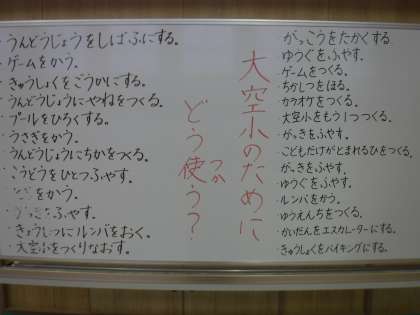 ・うんどうじょうをしばふにする。
・ゲームをかう。
・きゅうしょくをごうかにする。
・うんどうじょうにやねをつくる。
・プールをひろくする。
・うさぎをかう。
・うんどうじょうにちかをつくる。
・こうどうをひとつふやす。
をかう。
をふやす。
・きょうしつにルンバをおく。
・大空小をつくりなおす。
大空小のために
どう使う？
つか
がっこうをたかくする
・ゆうぐをふやす。
・ゲームをつくる。
・ちかしつをほる。
・カラオケをつくる。
・大空小をもう1つつくる。
・がっきをふやす。
・こどもだけがとまれるひをつくる。
・がっきをふやす。
・ゆうぐをふやす。
・ルンバをかう。
・ゆうえんちをつくる。
・かいだんをエスカレーターにする。
・きゅうしょくをバイキングにする。